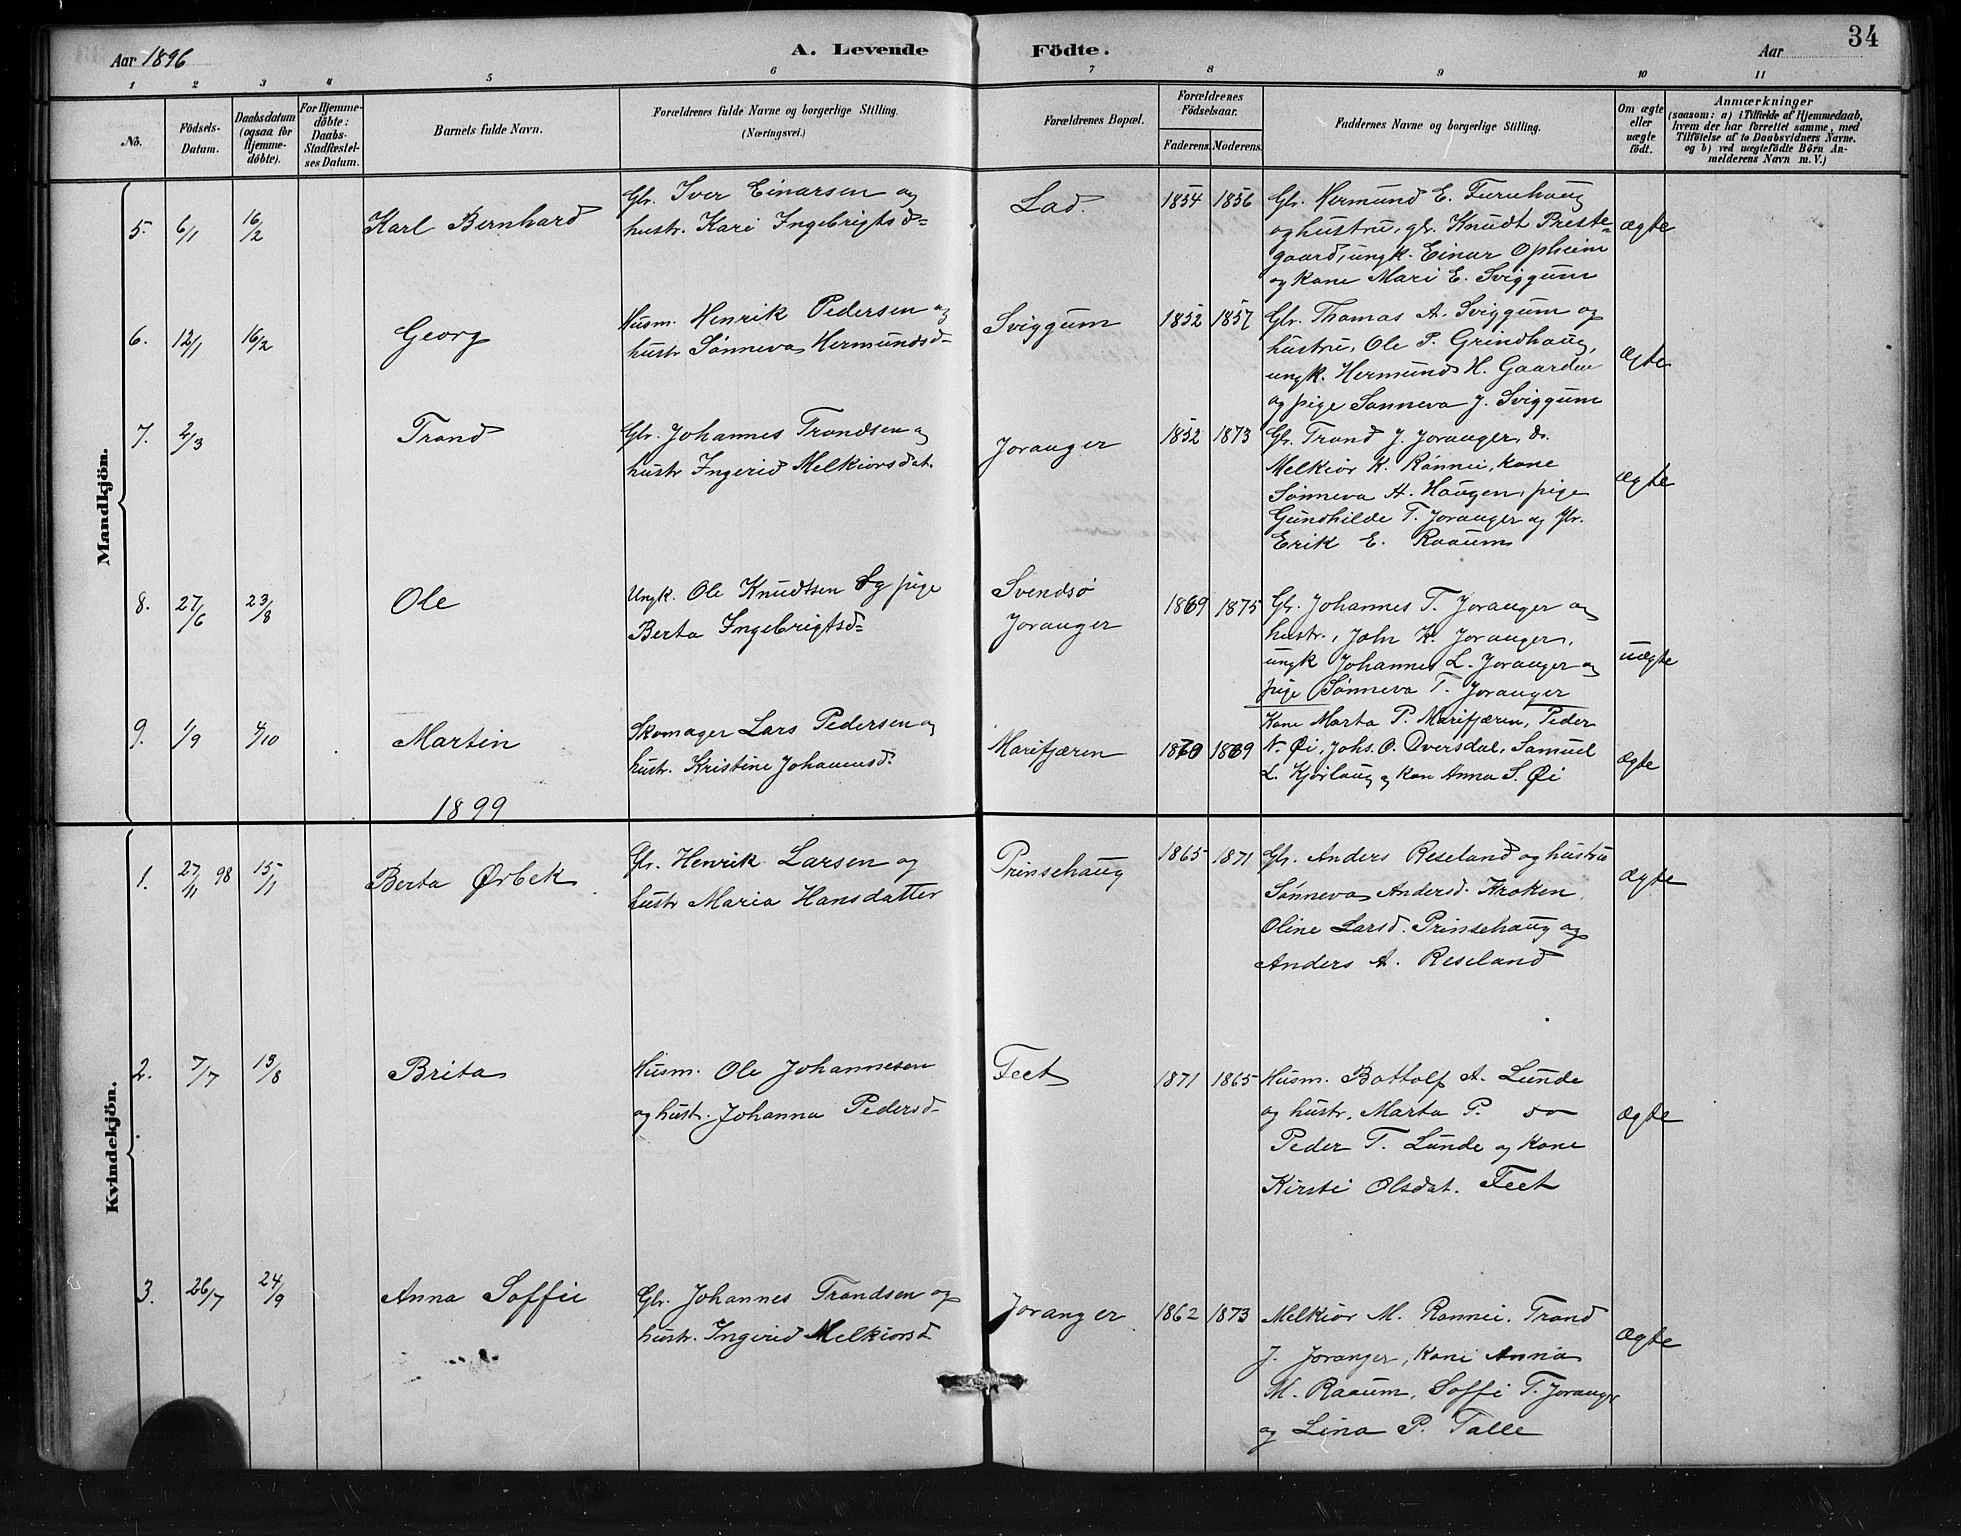 Aar 1896
A. Levende Födte.
Aar
34
1 2 3 4 5 6 7 8 9 10 11
No.
Födsels-Datum.
Daabsdatum (ogsaa for Hjemme-döbte).
For Hjemme-döbte: Daabs-Stadfæstel-ses Datum.
Barnets fulde Navn.
Forældrenes fulde Navne og borgerlige Stilling.
(Næringsvei.)
Forældrenes Bopæl.
Forældrenes Födselsaar.
Faderens. Moderens.
Faddernes Navne og borgerlige Stilling.
Om ægte eller uægte födt.
Anmærkninger
(saasom: a) i Tilfælde af Hjemmedaab,
hvem der har forrettet samme, med
Tilföielse af to Daabsvidners Navne.
og b) ved uægtefödte Börn An-
melderens Navn m. V.)
Mandkjön.
5. 6/1 16/2 Karl Bernhard
Gbr. Iver Einarsen og
hustr. Kari Ingebrigtsd=
Lad. 1854 1856
Gbr. Hermund E. Furuhaug
og hustru, gbr. Knudt Preste-
gaard, ungk. Einar Opheim
og kone Mari E. Sviggum
ægte
6. 12/1 16/2 Georg
Husm. Henrik Pedersen og
hustr Sønneva Hermundsd-
Sviggum 1852 1857
Gbr. Thomas A. Sviggum og
hustru, Ole P. Grindhaug,
ungk. Hermund H. Gaarden
og pige Sønneva J. Sviggum
Ægte
7. 2/3 Trond
Gbr. Johannes Trondsen og
hustr Ingerid Melkiorsdat.
Joranger 1852 1873
Gbr. Trond J. Joranger, do.
Melkior K. Rønnei, kone
Sønneva A. Haugen, pige
Gundhilde T. Joranger og gbr.
Erik E. Raaum
ægte
8. 27/6 23/8 Ole
Ungk. Ole Knudtsen og pige
Berta Ingebrigtsd=
Svendsø
Joranger
1869 1875
Gbr. Johannes T. Joranger og
hustr., John K. Joranger,
ungk Johannes L. Joranger og
pige Sønneva T. Joranger
uægte
9. 1/9 4/10 Martin
Skomager Lars Pedersen og
hustr. Kristine Johannesd.
Marifjæren 1870 1869
Kone Marta P. Marifjæren, Peder
N. Øi, Johs. O. Dversdal, Samuel
L. Kjørlaug og kone Anna S. Øi
ægte
1899
Kvindekjön.
1. 27/11 98 15/1 Berta Ørbek
Gbr. Henrik Larsen og
hustr Maria Hansdatter
Prinsehaug 1865 1871
Gbr. Anders Reseland og hustru
Sønneva Andersd. Kroken,
Oline Larsd. Prinsehaug og
Anders A. Reseland
Ægte
2. 7/7 13/8 Brita
Husm. Ole Johannesen
og hustr. Johanna Pedersd-
Feet 1871 1865
Husm. Bottolf A. Lunde
og hustr. Marta P. do
Peder T. Lunde og kone
Kirsti Olsdat. Feet
Ægte
3. 26/7 24/9 Anna Soffie
Gbr. Johannes Trondsen og
hustr. Ingerid Melkiorsd
Joranger 1862 1873
Melkior M. Rønnei, Trond
J. Joranger, kone Anna
M. Raaum, Soffi T. Joranger
og Lina P. Talle
Ægte